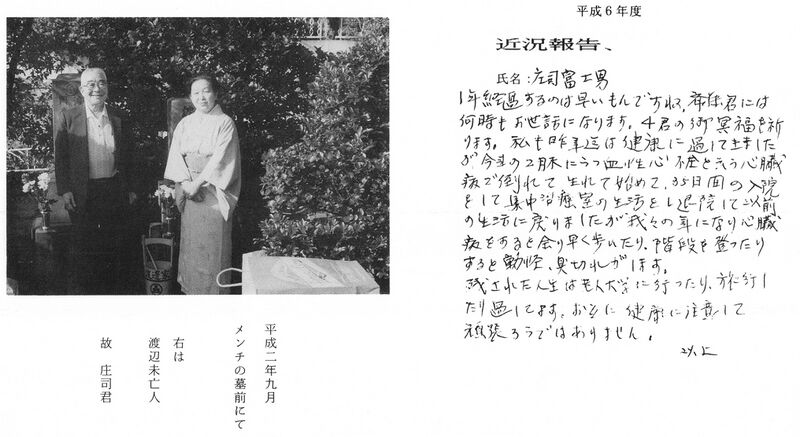 平成6年度
近況報告、
氏名:庄司富士男
1年経過するのは早いもんですね、 君には
何時もお世話になります。4君の御冥福を祈
ります。私も昨年迄は健康に過して来ました
が今年の2月末にうっ血性心不全と云う心臓
病で倒れて生れて始めて、35日間の入院
をして集中治療室の生活をし退院して以前
の生活に戻りましたが我々の年になり心臓
病をすると余り早く歩いたり、階段を登ったり
すると動悸、息切れがします。
残された人生は老人大学に行ったり、旅行し
たり過してます。お互に健康に注意して
頑張ろうではありません。
以上
平成二年九月
メンチの墓前にて
右は
渡辺未亡人
故 庄司君